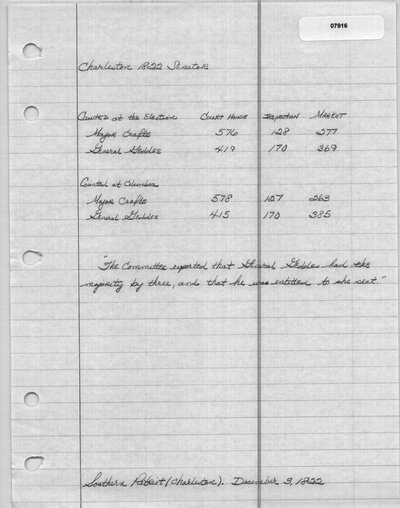 07916
Charleston 1822 Senators
Counted at the Election Court House Inspection Market
Major Crafts 576 128 277
General Geddes 419 170 369
Counted at Columbia
Major Crafts 578 127 263
General Geddes 415 170 385
"The Committee reported that General Geddes had the
majority by three, and that he was entitled to the seat."
Southern Patriot (Charleston), December 3, 1822